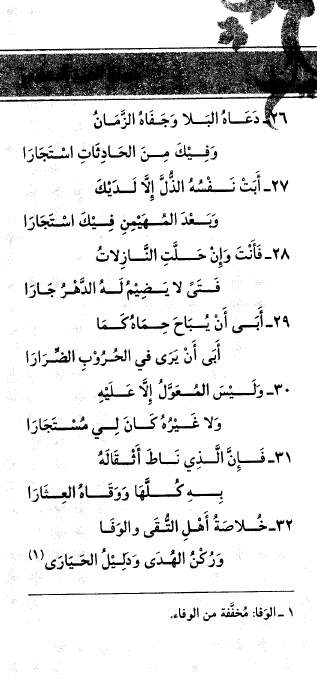 ٢٦ـ دَعَاهُ البَلا وَجَفَاهُ الزَّمَانُ
وَفِيْكَ مِنَ الحَادِثَاتِ اسْتَجَارَا
٢٧ـ أَبَتْ نَفْسُهُ الذُّلَّ إِلَّا لَدَيْكَ
وَبَعْدَ المُهَيْمِنِ فِيْكَ اسْتَجَارَا
٢٨ـ فَأَنْتَ وَإِنْ حَلَّتِ النَّازِلَاتُ
فَتَىً لا يَضِيْمُ لَهُ الدَّهْرُ جَارَا
٢٩ـ أَبَى أَنْ يُبَاحَ حِمَاهُ كَمَا
أَبَى أَنْ يَرَى في الحُرُوْبِ الضِّرَارَا
٣٠ـ وَلَيْسَ المُعَوَّلُ إِلَّا عَلَيْهِ
وَلا غَيْرُهُ كَانَ لِي مُسْتَجَارَا
٣١ـ فَإِنَّ الَّذِي نَاطَ أَثْقَالَهُ
بِهِ كُلَّهَا وَوَقَاهُ العِثَارَا
٣٢ـ خُلاصَةُ أَهْلِ التُّقَى والوَفَا
وَرُكْنُ الهُدَى وَدَلِيْلُ الحَيَارَى (١)
١ ـ الوَفا: مُخَفَّفة من الوفاء.